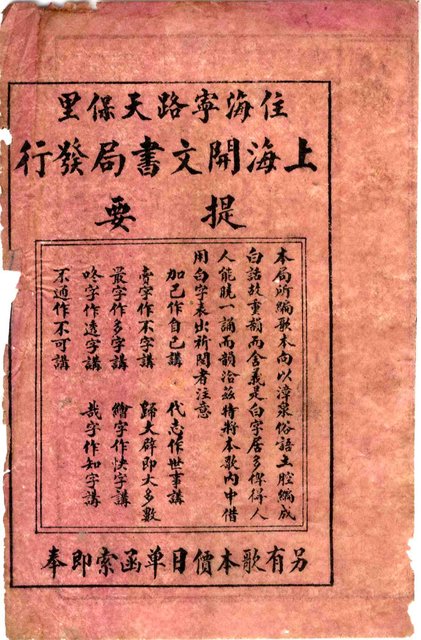 住海寧路天保里
上海開文書局發行
提要
本局所編歌本向以漳泉俗語土腔編成
白話故重韻而舍義是白字居多俾得人
人能曉一誦而韻洽茲特將本歌內中借
用白字表出祈閱者注意
加己作自己講 代志作世事講
字作不字講 歸大辟即大多數
最字作多字講 繪字作字講
咚字作透字講 哉字作知字講
不通作不可講
另有歌本價目单函索即奉